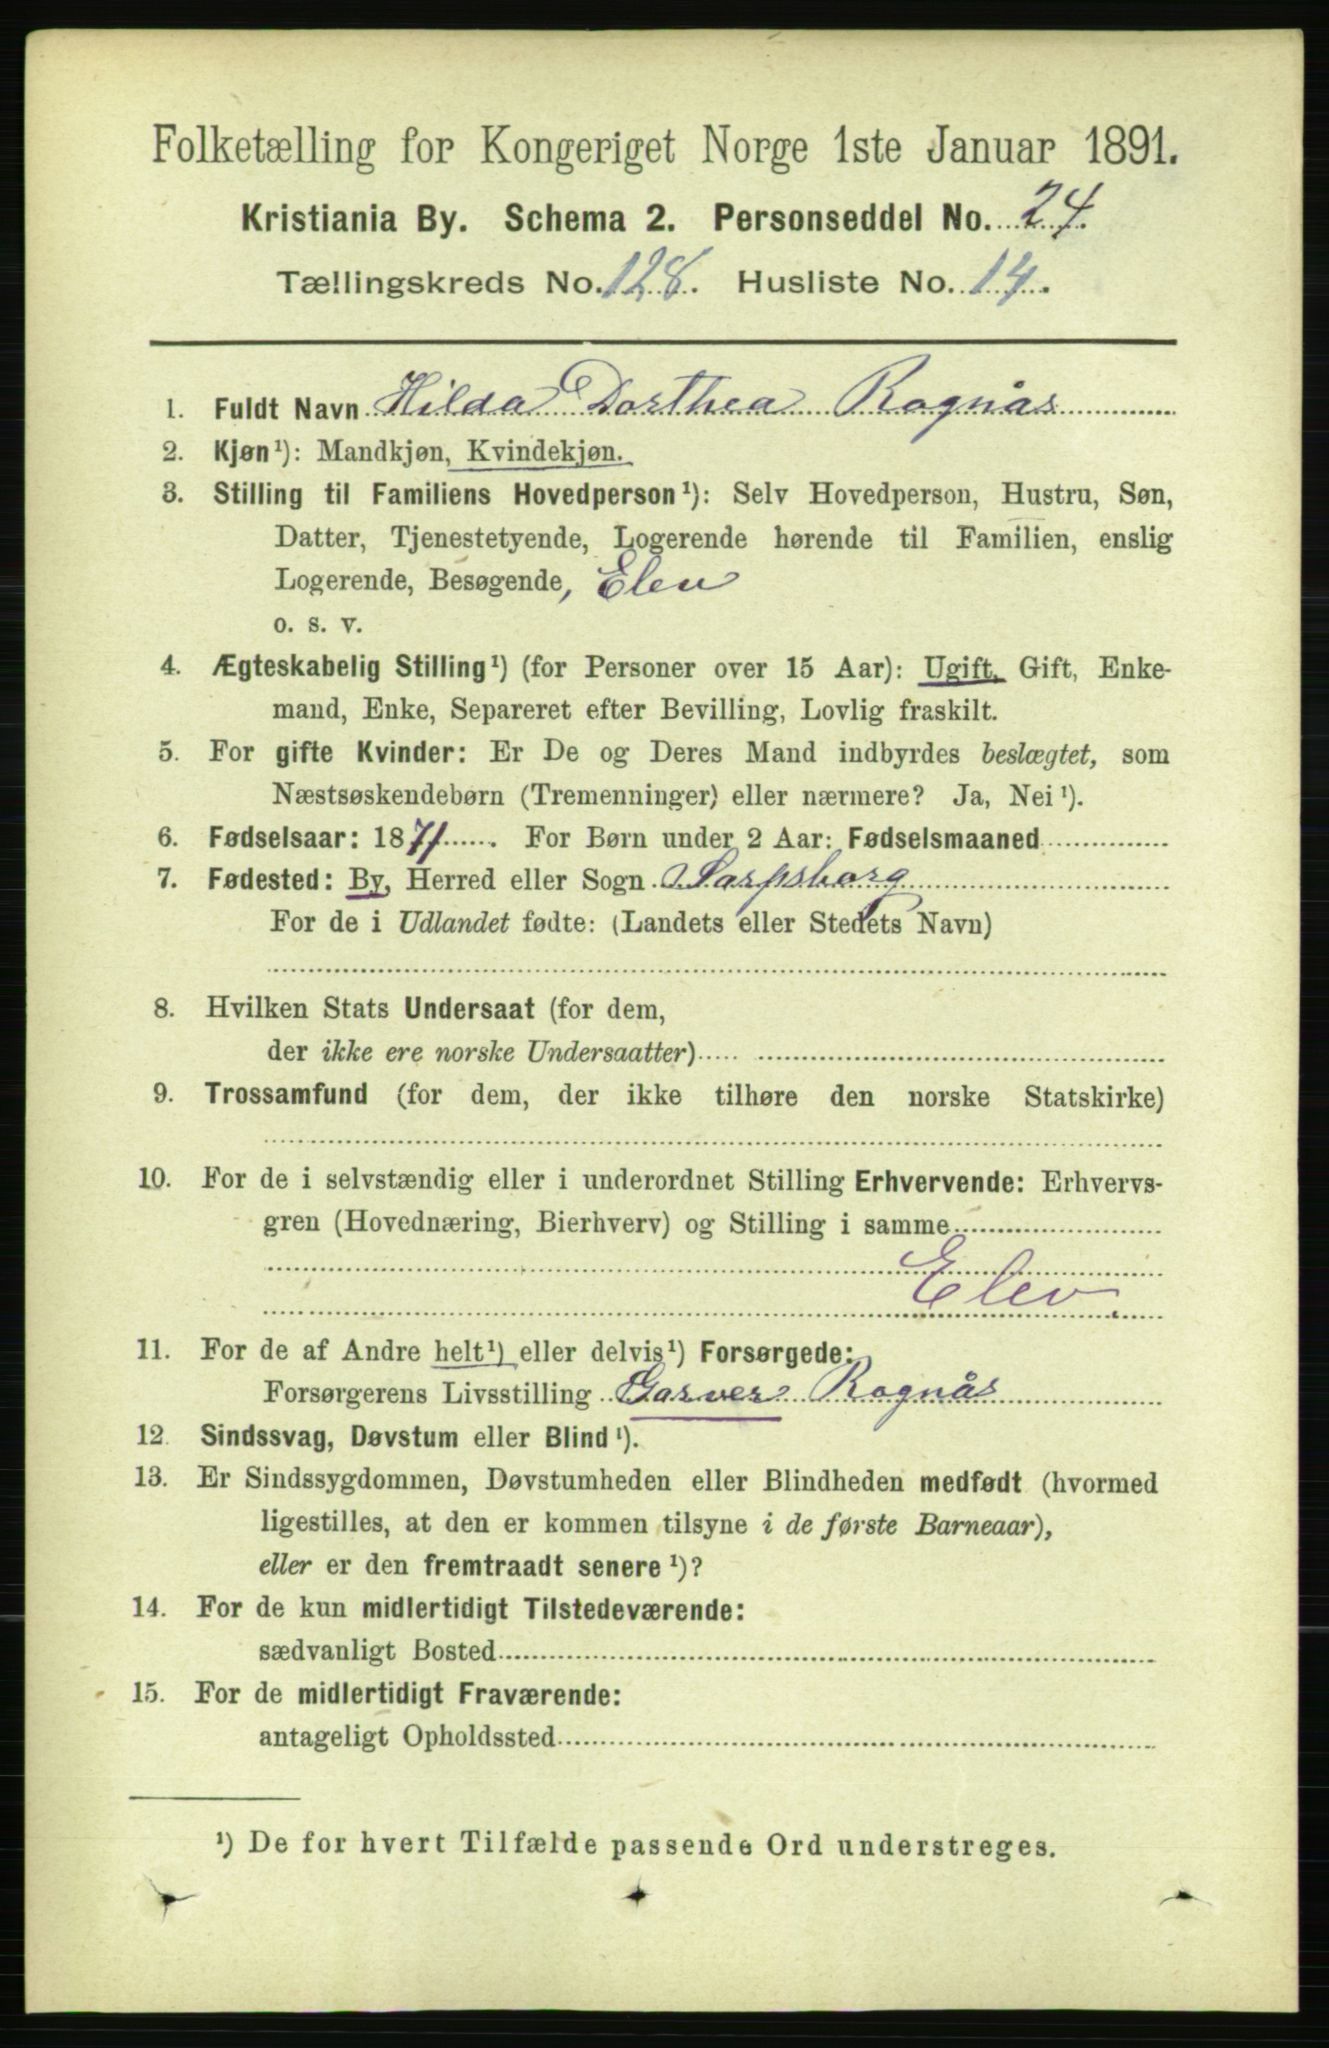 Folketælling for Kongeriget Norge 1ste Januar 1891.
Kristiania By. Schema 2. Personseddel No. 24.
Tællingskreds No. 128. Husliste No. 14.
1. Fuldt Navn Hilda Dorthea Rognås
2. Kjøn¹): Mandkjøn, Kvindekjøn.
3. Stilling til Familiens Hovedperson¹): Selv Hovedperson, Hustru, Søn,
Datter, Tjenestetyende, Logerende hørende til Familien, enslig
Logerende, Besøgende, Elev
o. s. v.
4. Ægteskabelig Stilling¹) (for Personer over 15 Aar): Ugift, Gift, Enke-
mand, Enke, Separeret efter Bevilling, Lovlig fraskilt.
5. For gifte Kvinder: Er De og Deres Mand indbyrdes beslægtet, som
Næstsøskendebørn (Tremenninger) eller nærmere? Ja, Nei¹).
6. Fødselsaar: 1871. For Børn under 2 Aar: Fødselsmaaned
7. Fødested: By, Herred eller Sogn Sarpsborg
For de i Udlandet fødte: (Landets eller Stedets Navn)
8. Hvilken Stats Undersaat (for dem,
der ikke ere norske Undersaatter)
9. Trossamfund (for dem, der ikke tilhøre den norske Statskirke)
10. For de i selvstændig eller i underordnet Stilling Erhvervende: Erhvervs-
gren (Hovednæring, Bierhverv) og Stilling i samme
Elev.
11. For de af Andre helt¹) eller delvis¹) Forsørgede:
Forsørgerens Livsstilling Garver Rognås
12. Sindssvag, Døvstum eller Blind¹).
13. Er Sindssygdommen, Døvstumheden eller Blindheden medfødt (hvormed
ligestilles, at den er kommen tilsyne i de første Barneaar),
eller er den fremtraadt senere¹)?
14. For de kun midlertidigt Tilstedeværende:
sædvanligt Bosted
15. For de midlertidigt Fraværende:
antageligt Opholdssted
¹) De for hvert Tilfælde passende Ord understreges.